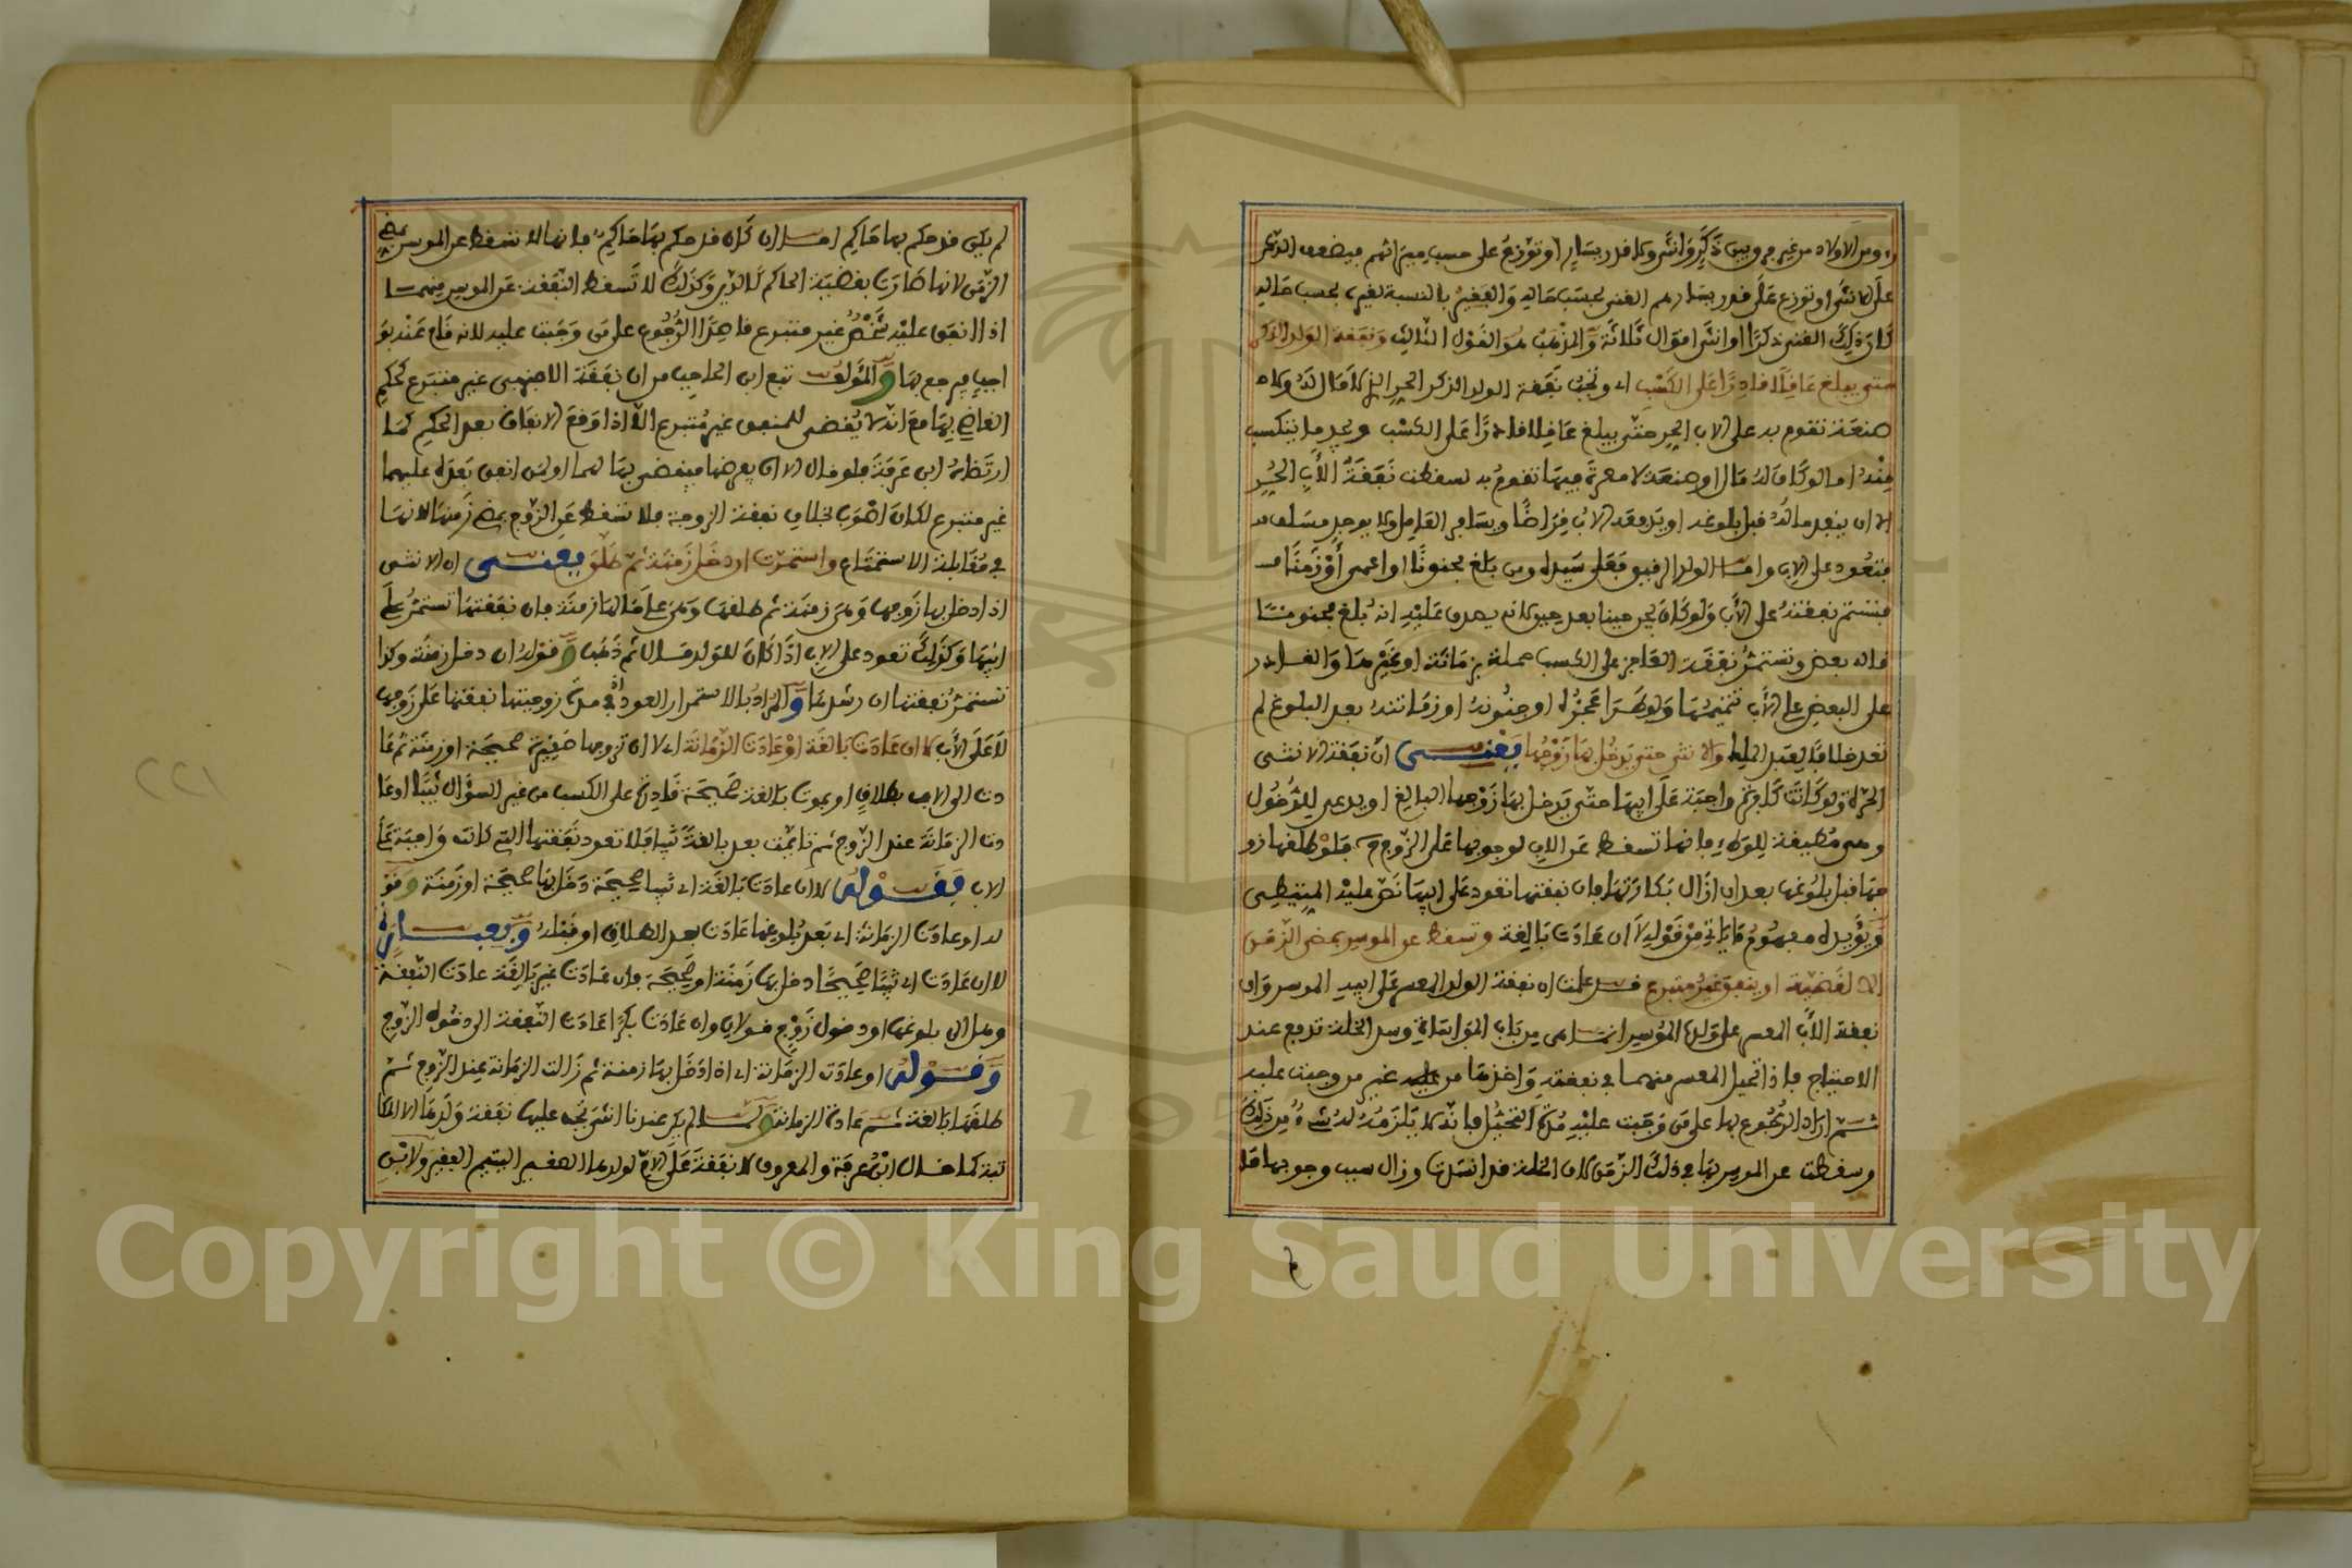 رءوس الاولاد من غير فرق بين ذَكَرٍ وَانثَى وكا قدر يسَارٍ او توَزّعُ على حسب ميرَاثهم فيضعف الذكر
علَى الانثَى او توزع عَلَى قدر يسَارهم الغنى بحسَب حَاله وَالفَقير بالنسبة لغيره بحسب حَاله
كَانَ ذلِكَ الغنى ذكرًا او انثَى اقوَال ثَلاثَة وَالمذْهَبُ هُوَ القَوْل الثَّالِث وَنَفقة الوَلد الذكر
حتى يبلغ عَاقِلًا قادِرًا عَلَى الكَسْبِ اى وتَجبُ نَفَقة الولد الذكر الحر الذى لا مَالَ لَهُ ولا
صنعَة تقوم به على الاب الحر حتّى يبلغ عَاقلا قادرًا عَلَى الكسْب ويجد ما يتكسب
مِنْهُ امَا لو كَانَ لهُ مَال او صنعَة لا معرة فيهَا تقومُ به لسقطت نَفَقَةُ الأَبِ الحُرِّ
الا ان ينفد مالهُ قبل بلوغه او يَدفعه الابُ قِرَاضًا ويسَافر العَامل ولا يوجد مسَلف
فتعُود على الاب وامّا الولد الرقيق فعَلى سَيده ومن بلغ مجنونًا او اعمى أَوْ زَمِنًا
فتستمر نفقتهُ على الأَب وَلو كَانَ يجن حينا بعد حين لانه يصدق عَليْهِ انهُ بلغ مجنونًا
قاله بعض وتستمرُّ نفَقَة العَاجز على الكسب جملة بزمَانَة اوغيْرهَا وَالقادر
على البعضِ على الأَب تتميمُهَا وَلوطَرَا عَجزُه اوجنُونهُ اوزمَانتهُ بعد البلوغ لم
تعد خلافًا لعبد الملك والانثى حتى يَدخُل بهَا زَوْجُهَا يَعْنى انَّ نفَقة الانثى
الحرّة وَلو كَانَت كَافرة واجبَة عَلَى ابيهَا حتّى يَدخل بهَا زَوْجها البَالغ او يدعى للدُّخُول
وهى مُطيقة لِلوَطءِ فانهَا تسقط عَن الاب لوجوبهَا عَلى الزّوج فَلوْ طلقهَا زو
جهَا قبل بلوُغهَا بعد ان ازَال بَكَارَتهَا فان نفقتها تعُود عَلى ابيهَا نَصّ عليْه المتيطى
وَيُؤيده مفهومُ مَا يَاتى مِنْ قَوْلِه لَا ان عَادَت بَالِغة وتسقط عن الموسر بمضى الزّمَن
الا لقَضيَّة او ينفق غيرُ متبرع قد علمت ان نفقة الولد المعسر عَلى ابيه الموسر وَان
نفقة الأَب المعسر على ولده المُوسر انمَا هى من بَاب الموَاسَاة وسد الخلة تدفع عند
الاحتيَاج فاذا تحيل المعسر منهما فى نفقته وَاخذهَا من غير من وجبت عليه
ثُمّ ارَاد الرّجُوع بها على من وَجَبت عليْهِ مُدّة التحَيُّل فانهُ لا يَلزَمُهُ لهُ شَىءٌ مِن ذَلِكَ
وسقطت عن الموسر بهَا فى ذلك الزّمَن لان الخلة قد انسَدت وزال سبب وجوبها مَا
لم يكن قد حكم بها حَاكِم امَا ان كَان قد حكم بهَا حَاكِم فانها لا تسقط عن الموسر بمضى
الزّمَن لانها صَارَت بقضيّة الحاكم كَالدّين وكَذلِكَ لا تَسقط النّفقة عَن الموسر منهمَا
اذا انفق عليْه شَخْصٌ غير متبرع فلهُ الرُّجُوع على من وَجَبت عليه لانه قَام عَنْهُ بوَ
اجب فيرجع بهَا وَالمُؤلف تبع ابن الحَاجب من ان نفَقَة الاجنبى غير متبرع كحُكم
القَاضى بهَا مَعَ انّهُ لا يُقضى للمنفق غير مُتبرع الا اذا وَقعَ الانفَاق بعد الحكم كمَا
ارتَضاهُ ابن عَرفَة فلو قال الا ان يفرضها فيقضى بهَا لهما او لمن انفق بَعدَه عليهما
غير متبرع لكَان اصْوَب بخلاف نفقة الزوجة فلا تسقط عَن الزّوج بمضى زَمنهَا لانهَا
فى مُقَابلة الاستمتَاع واستمَرّت ان دخَل زَمنَة ثم طَلّق يعنى ان الانثى
اذا دخل بها زَوجها وَهىَ زمنَة ثم طلقهَا وَهىَ عَلى حَالهَا زمنَة فان نفَقتهَا تستمرُّ عَلَى
ابيهَا وَكَذلِكَ تعود على الاب اذَا كَانَ للوَلد مَال ثم ذَهَب وَقولهُ ان دخل زمنَة وكذا
تستمرُّ نفقتها ان رشدهَا وَالمُرَادُ بالاستمرار العود اذ فى مدّة زوجيتها نفقتها عَلى زَوجها
لَا عَلَى الأَب لا ان عَادَت بَالغَة اوْ عَادَت الزّمَانَة اى لا ان تزوجها صَغيرة صحيحَة او زمنَة ثم عَا
دت الى الاب بطلاقٍ او بموت بالغة صَحيحَة قَادِرَة على الكسب من غير السؤال ثيّبًا او عَا
دت الزمَانَة عند الزّوج ثم تأيمت بعد بالغة ثَيّبا فلا تعود نفقتهَا التى كانت وَاجبَة عَلَى
الاب فَقَوْلهُ لا ان عَادَت بَالغَة اى ثيبا صحيحَة دَخَل بهَا صحيحَة او زَمنَة وَقَوْ
له او عَادَت الزمَانَة اى بَعدَ بُلوغهَا عَادَت بعد الطلاق او قَبْله وَبعبَارَة
لا ان عَادَت اى ثَيّبًا صَحيحًا دخل بهَا زَمنَة او صَحيحَة فان عَادَت غير بَالِغَة عَادَت النّفقة
وهل الى بلوغهَا او دخول زَوْج قولان وان عَادَت بكرًا عَادَت النّفقة الى دخُول الزّوج
وَقَوْلهُ او عادَت الزمَانة اى اذا دَخَل بهَا زمنة ثم زَالت الزمَانة عِند الزّوج ثم
طلقهَا بَالغة ثم عَادة الزمانة وَلمَا لم يكن عندنا انثى تجب عليها نفقة وَلَدهَا الا المكَا
تبة كما قال ابْنُ عَرفَة والمعروف لا نفَقَة عَلَى الامّ لولدها الصغير اليتيم الفقير ولابْن
٢٢١
Copyright © King Saud University